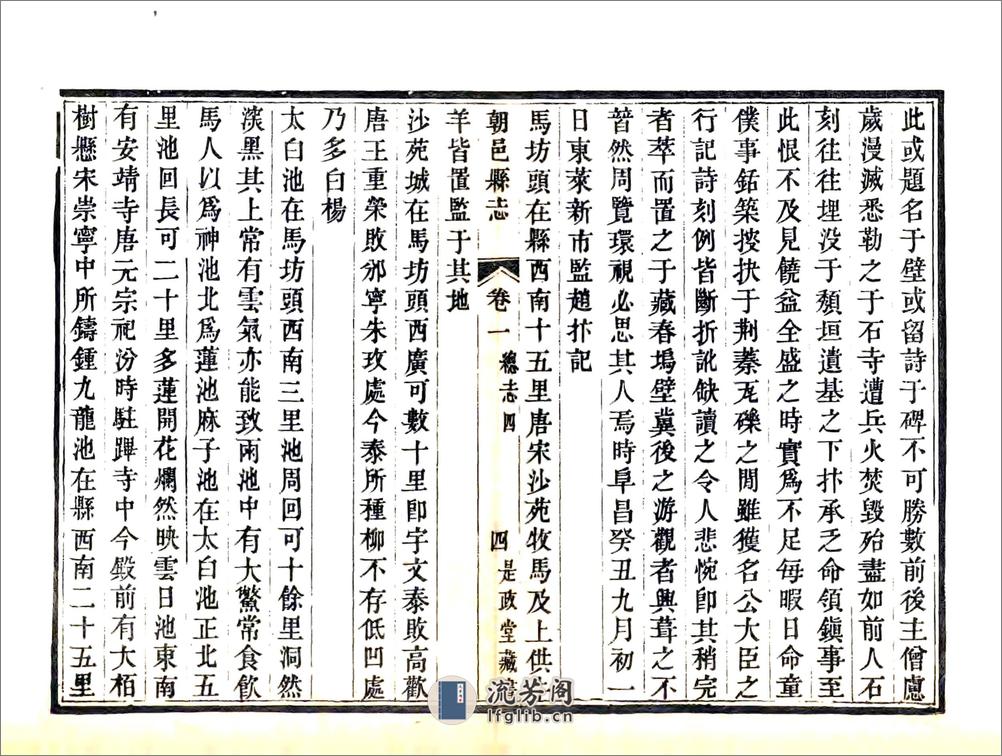 此或題名于壁或留詩于碑不可勝數前後主僧慮
歲漫滅悉勒之于石寺遭兵火焚毀殆盡如前人石
刻往往埋没于頽垣遺基之下抃承乏命領鎭事至
此恨不及見饒益全盛之時實爲不足每暇日命童
僕事鍤築按抉于荆蓁瓦礫之間雖獲名公大臣之
行記詩刻例皆斷折訛缺讀之令人悲惋卽其稍完
者萃而置之于藏春塢壁冀後之游觀者興葺之不
替然周覽環視必思其人焉時阜昌癸丑九月初一
日東萊新市監趙抃記
馬坊頭在縣西南十五里唐宋沙苑牧馬及上供
朝邑縣志 卷一 總志四 四 是政堂藏
羊皆置監于其地
沙苑城在馬坊頭西廣可數十里卽宇文泰敗高歡
唐王重榮敗邠寧朱玫處今泰所種柳不存低凹處
乃多白楊
太白池在馬坊頭西南三里池周回可十餘里洞然
淡黑其上常有雲氣亦能致雨池中有大鱉常食飮
馬人以爲神池北爲蓮池麻子池在太白池正北五
里池回長可二十里多蓮開花爛然映雲日池東南
有安靖寺唐元宗祀汾時駐蹕寺中今殿前有大栢
樹懸宋崇寧中所鑄鍾九龍池在縣西南二十五里
流芳阁
lfglib.cn